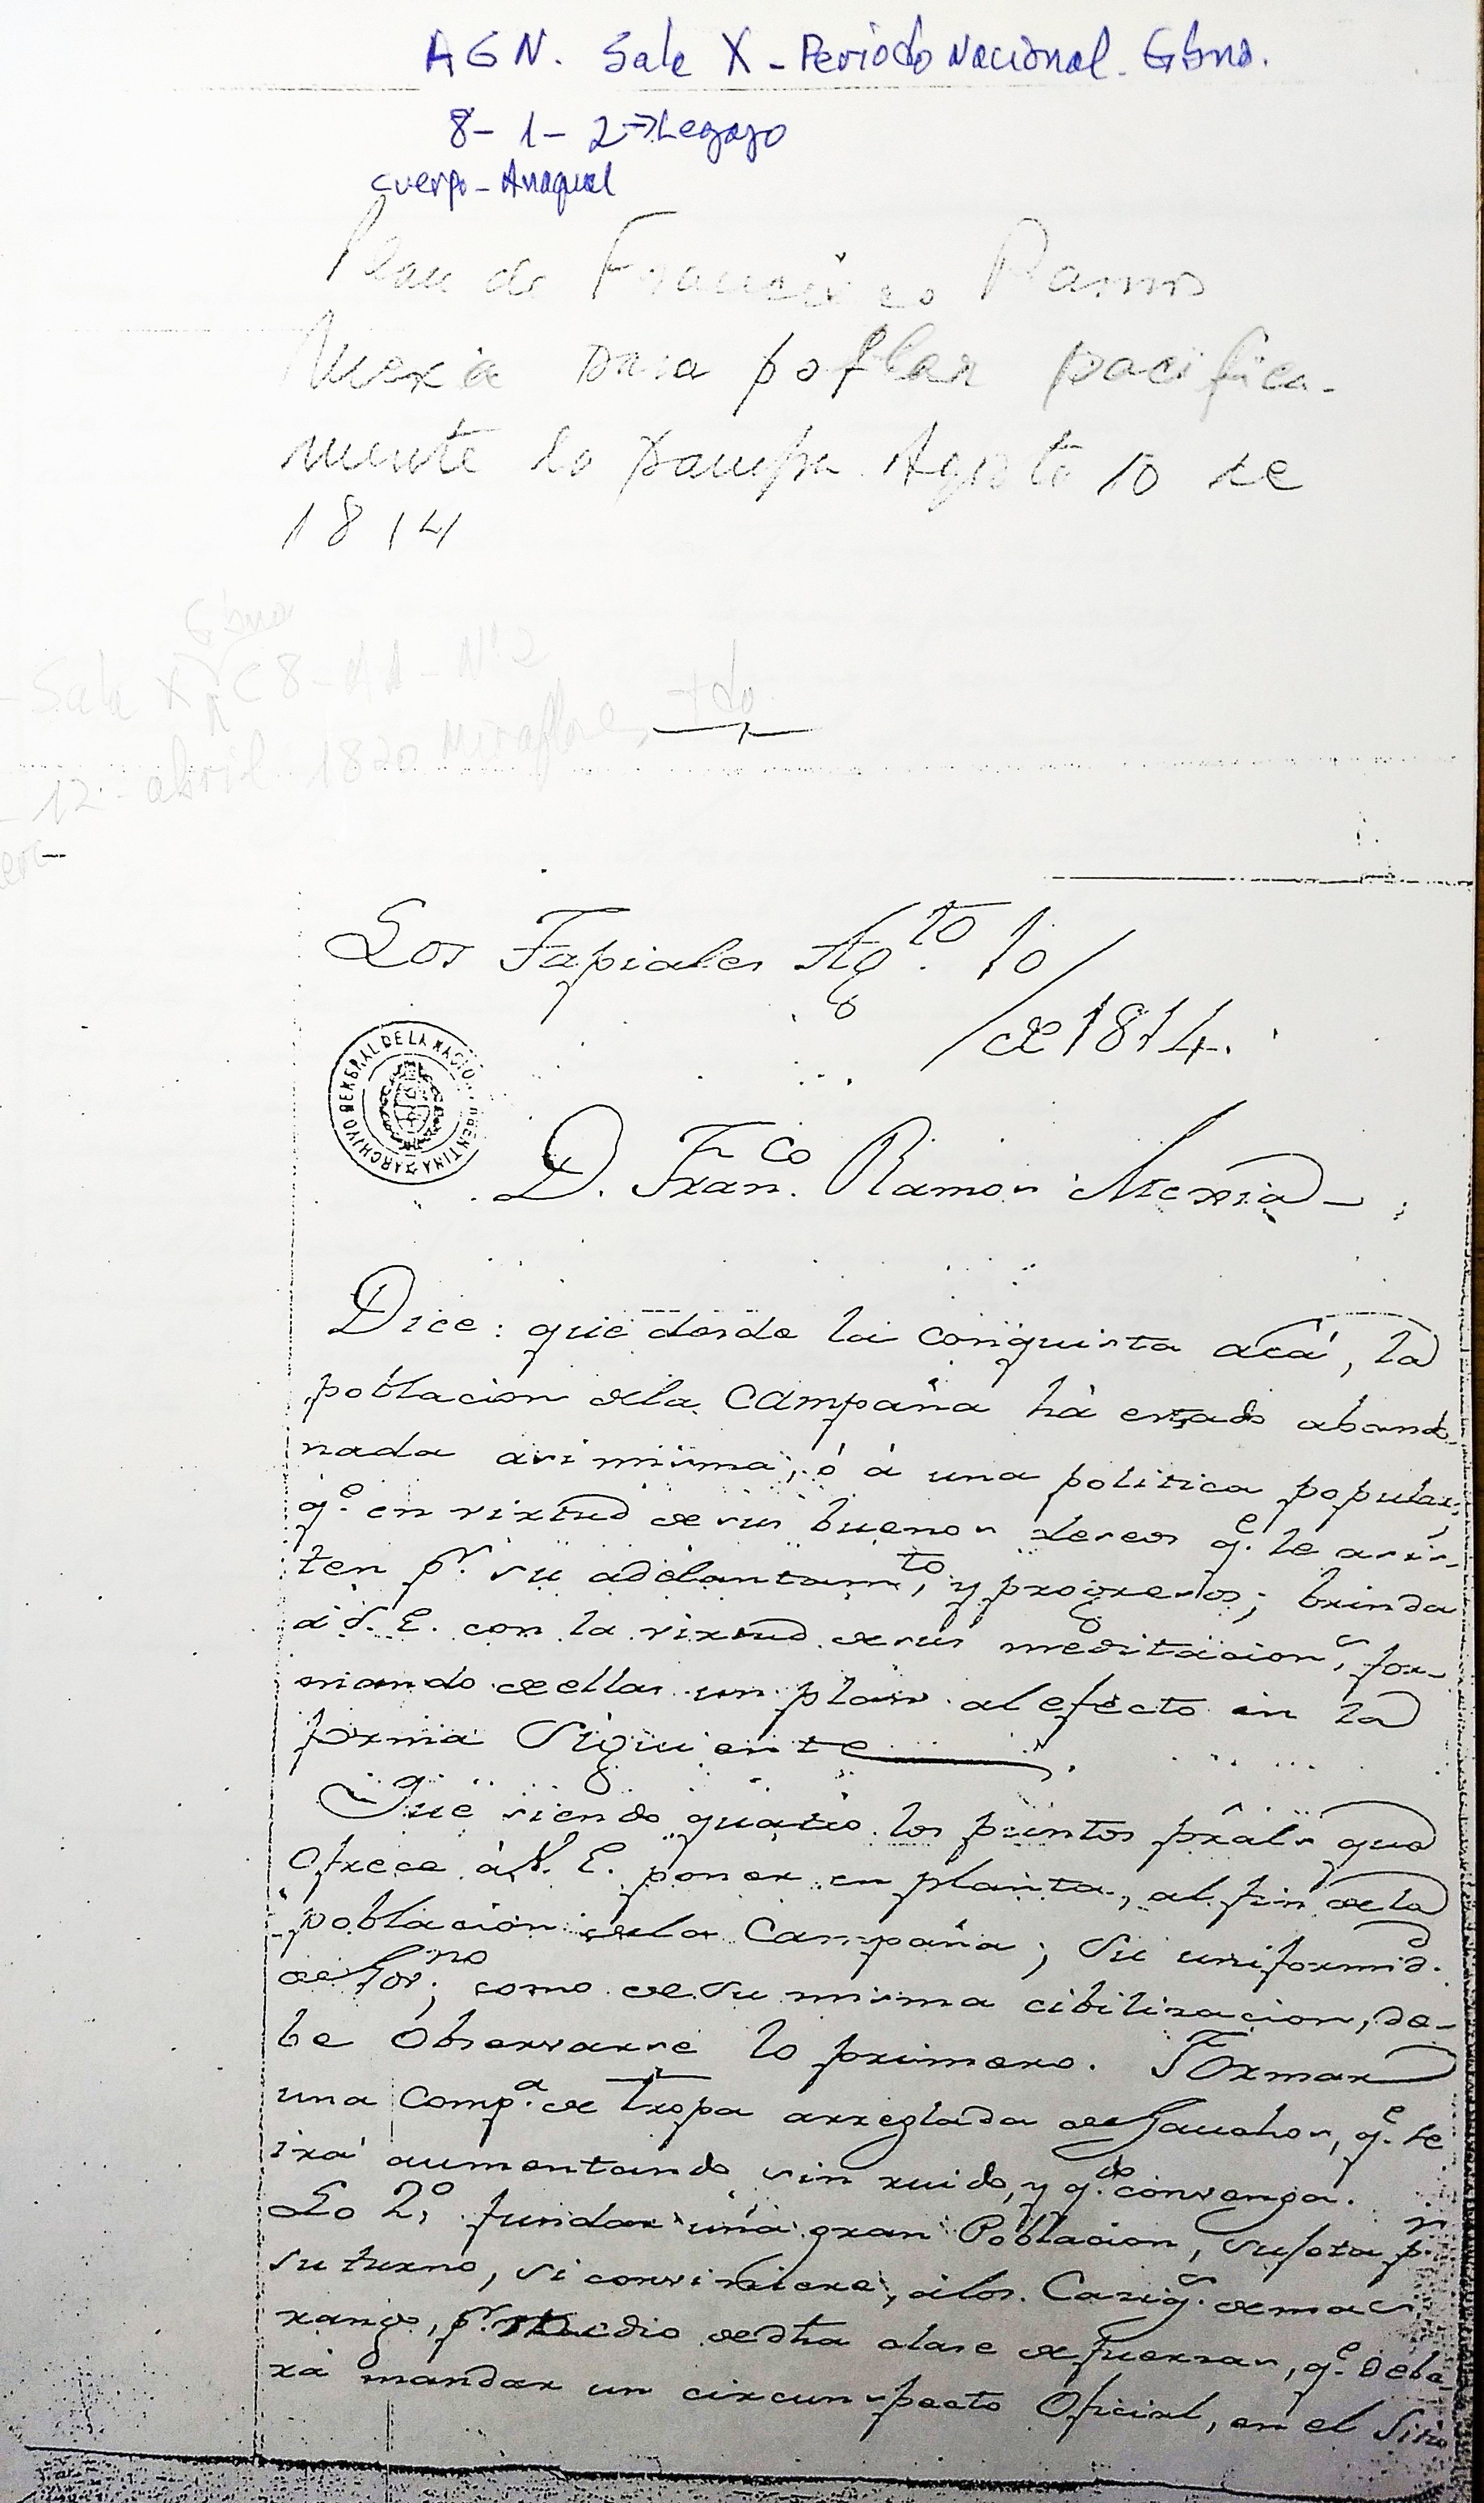 AGN. Sala X - Periodo Nacional - Gbno.
8 - 1 - 2 → Legajo
cuerpo - Anaquel
Plan de Francisco Ramos
Mexia para poblar pacifica-
mente la pampa. Agosto 10 de
1814
Gbno
Sala X C8 - A1 - Nº 2
12 - abril 1820 Miraflores
Los Tapiales Ag.to 10
de 1814.
ARCHIVO GENERAL DE LA NACION ARGENTINA
D. Fran.co Ramos Mexia
Dice: que desde la conquista acá, la
poblacion dela campaña há estado abando-
nada asi misma, ó á una politica popular,
q.e en virtud de sus buenos deseos q.e le asis-
ten p.r su adelantam.to, y progresos; brinda
á V. E. con la virtud de sus meditacion.s, for-
mando de ellas un plan al efecto en la
forma siguiente
Que siendo quatro los puntos prâl.s que
ofrece á V. E. poner en planta, al fin de la
poblacion dela Campaña; su uniformid.d
de Gov.no; como de su misma cibilizacion, de-
be observarse lo primero. Formar
una Comp.a de tropa arreglada de Gauchos, q.e se
irá aumentando sin ruido, y q.do convenga.
Lo 2.o fundar una gran Poblacion, sujeta p.r
su turno, si conviniere, á los Caziq.s de mas
rango, p.r medio de dha clase de fuerzas, q.e debe
rá mandar un circunspecto Oficial, en el Sitio